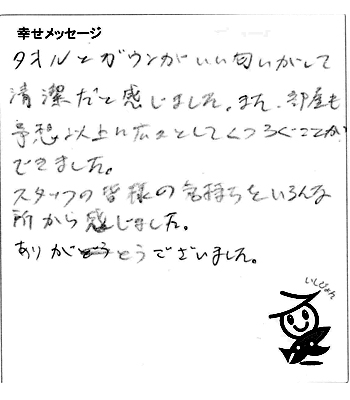 幸せメッセージ
タオルとガウンがいい匂いがして
清潔だと感じました。また、部屋も
予想以上に広々としてくつろぐことが
できました。
スタッフの皆様の気持ちをいろんな
所から感じました。
ありがとうございました。